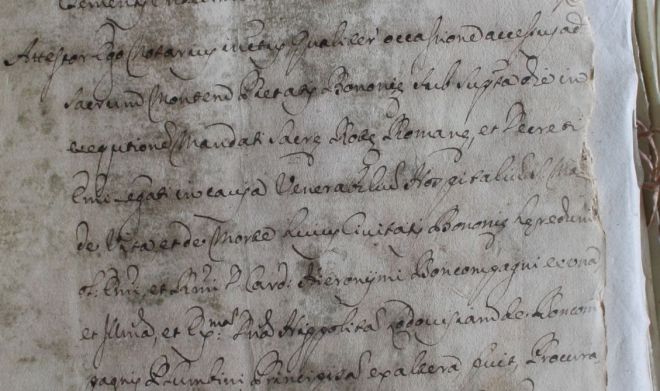 Attestor Ego Notarius inctus Qualiter occasione accessus ad
Sacrum Montem Pietatis Bononię sub supta die in
exequtione Mandati Sacrę Rotę Romanę, et Decreti
Emi Legati in causa Venerabilium Hospitalium S. Mę
de Vita et de Morte huius Civitatis Bononię hęredum
et Rmi D. Card. Hieronymi Boncompagni ex una
et Illma, et Exma Dna Hippolita Lodovisia de Boncom
pagnis Plumbini Principissa ex altera fuit, Procura